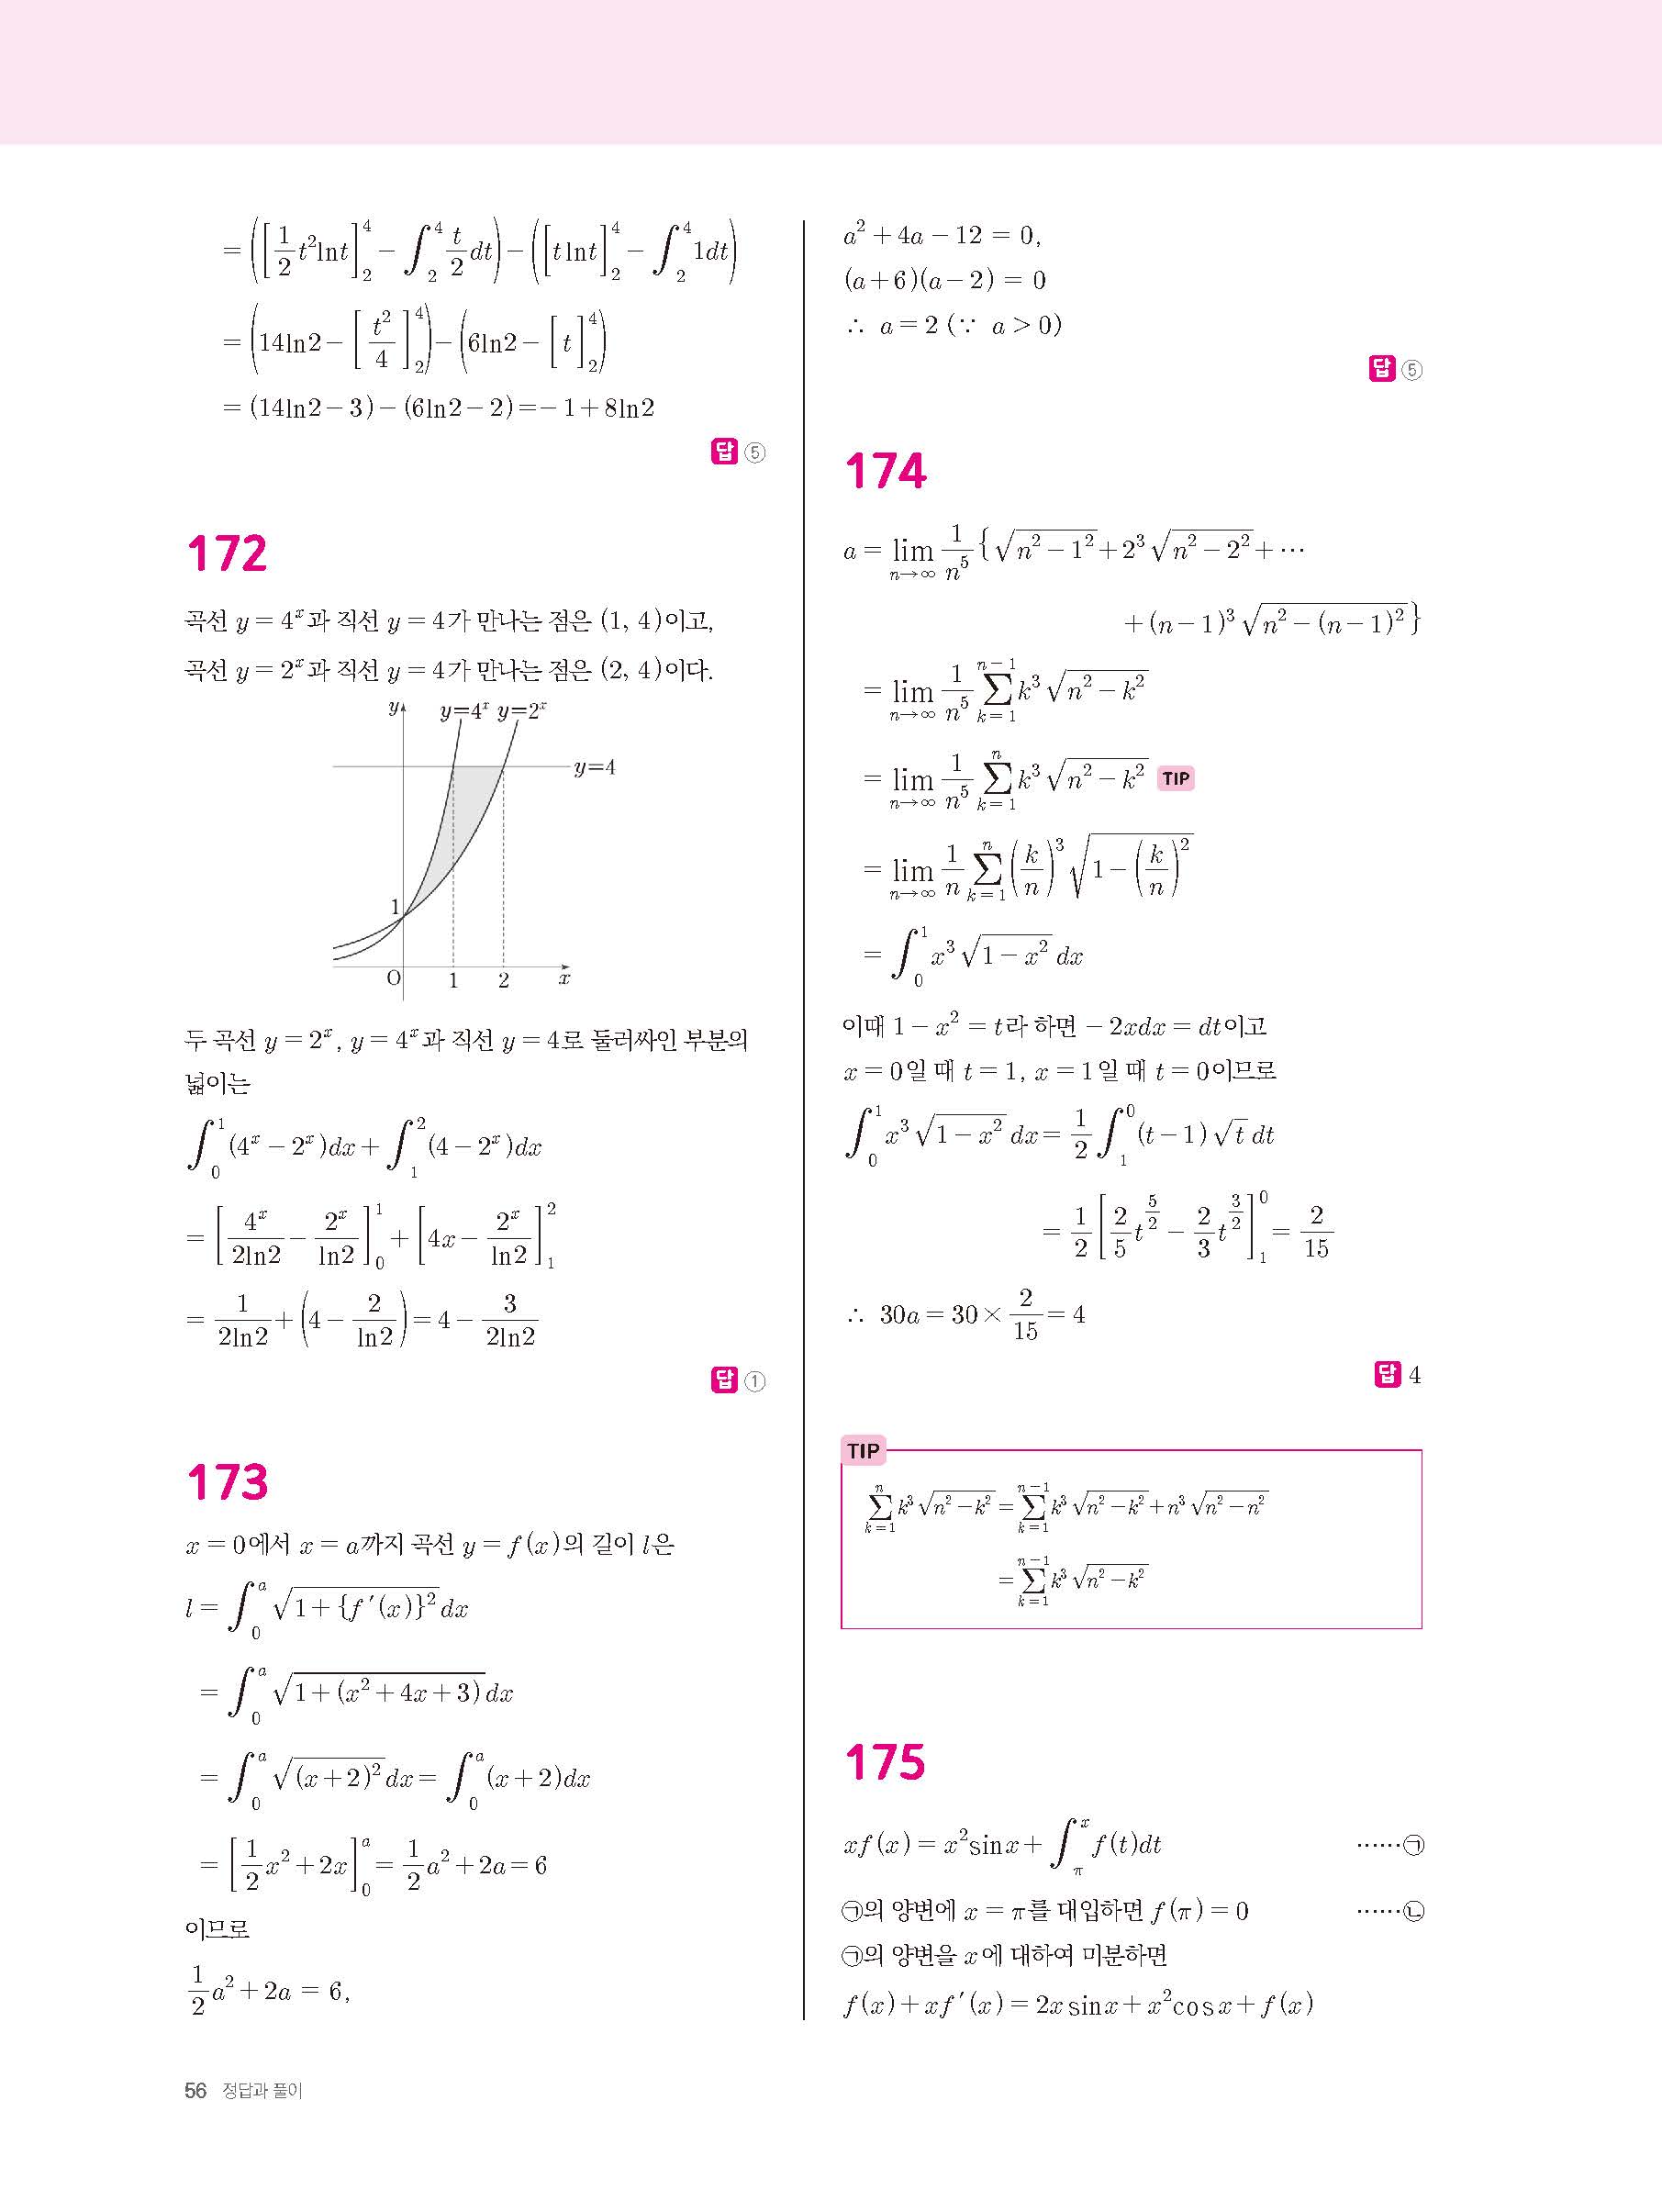 = ([1/2 t²lnt]₂⁴ − ∫₂⁴ t/2 dt) − ([t lnt]₂⁴ − ∫₂⁴ 1dt)
= (14ln2 − [t²/4]₂⁴) − (6ln2 − [t]₂⁴)
= (14ln2 − 3) − (6ln2 − 2) = − 1 + 8ln2
답 ⑤
172
곡선 y = 4ˣ과 직선 y = 4가 만나는 점은 (1, 4)이고,
곡선 y = 2ˣ과 직선 y = 4가 만나는 점은 (2, 4)이다.
y y=4ˣ y=2ˣ
y=4
1
O 1 2 x
두 곡선 y = 2ˣ, y = 4ˣ과 직선 y = 4로 둘러싸인 부분의
넓이는
∫₀¹ (4ˣ − 2ˣ)dx + ∫₁² (4 − 2ˣ)dx
= [4ˣ/2ln2 − 2ˣ/ln2]₀¹ + [4x − 2ˣ/ln2]₁²
= 1/2ln2 + (4 − 2/ln2) = 4 − 3/2ln2
답 ①
173
x = 0에서 x = a까지 곡선 y = f(x)의 길이 l은
l = ∫₀ᵃ √(1 + {f′(x)}²) dx
= ∫₀ᵃ √(1 + (x² + 4x + 3)) dx
= ∫₀ᵃ √((x+2)²) dx = ∫₀ᵃ (x+2)dx
= [1/2 x² + 2x]₀ᵃ = 1/2 a² + 2a = 6
이므로
1/2 a² + 2a = 6,
a² + 4a − 12 = 0,
(a+6)(a−2) = 0
∴ a = 2 (∵ a > 0)
답 ⑤
174
a = lim_{n→∞} 1/n⁵ {√(n² − 1²) + 2³√(n² − 2²) + ⋯
+ (n−1)³√(n² − (n−1)²)}
= lim_{n→∞} 1/n⁵ ∑_{k=1}^{n−1} k³√(n² − k²)
= lim_{n→∞} 1/n⁵ ∑_{k=1}^{n} k³√(n² − k²) TIP
= lim_{n→∞} 1/n ∑_{k=1}^{n} (k/n)³ √(1 − (k/n)²)
= ∫₀¹ x³√(1 − x²) dx
이때 1 − x² = t라 하면 − 2xdx = dt이고
x = 0일 때 t = 1, x = 1일 때 t = 0이므로
∫₀¹ x³√(1 − x²) dx = 1/2 ∫₁⁰ (t−1)√t dt
= 1/2 [2/5 t^{5/2} − 2/3 t^{3/2}]₁⁰ = 2/15
∴ 30a = 30 × 2/15 = 4
답 4
TIP
∑_{k=1}^{n} k³√(n² − k²) = ∑_{k=1}^{n−1} k³√(n² − k²) + n³√(n² − n²)
= ∑_{k=1}^{n−1} k³√(n² − k²)
175
xf(x) = x²sinx + ∫_π^x f(t)dt ⋯⋯㉠
㉠의 양변에 x = π를 대입하면 f(π) = 0 ⋯⋯㉡
㉠의 양변을 x에 대하여 미분하면
f(x) + xf′(x) = 2x sinx + x²cosx + f(x)
56 정답과 풀이